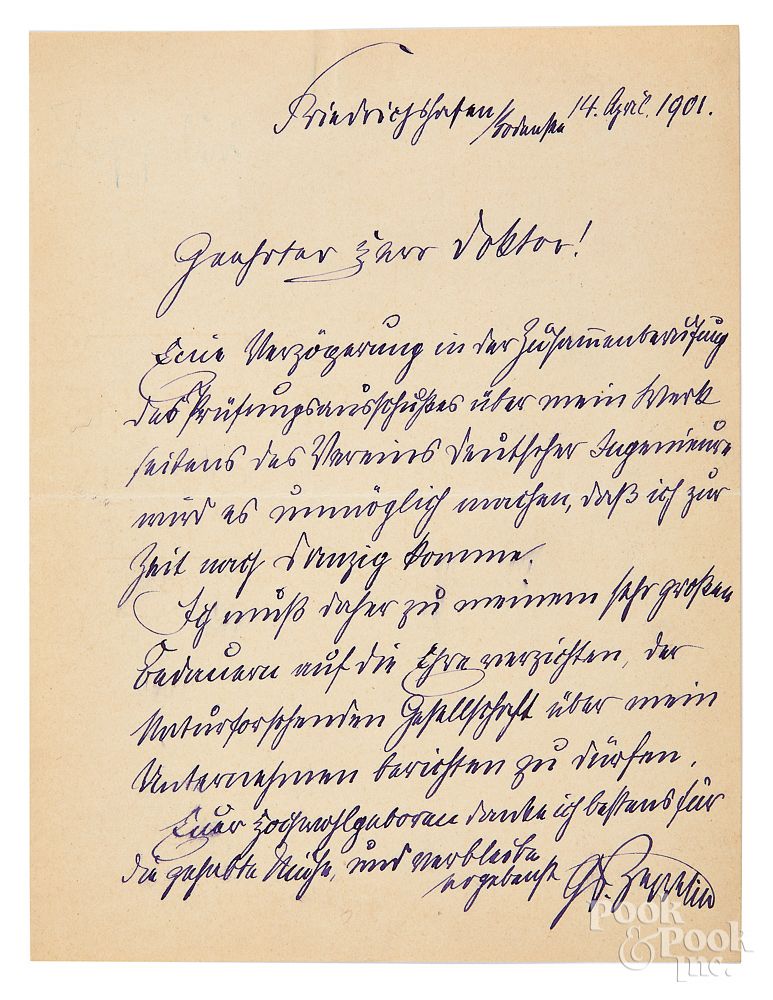 Friedrichshafen /Bodensee 14. April. 1901.
Geehrter Herr Doktor!
Eine Verzögerung in der Zusammenberufung
des Prüfungsausschußes über mein Werk
seitens des Vereins deutscher Ingenieure
wird es unmöglich machen, daß ich zur
Zeit nach Danzig komme.
Ich muß daher zu meinem sehr großen
Bedauern auf die Ehre verzichten, der
Naturforschenden Gesellschaft über mein
Unternehmen berichten zu dürfen.
Euer Hochwohlgeboren danke ich bestens für
die gehabte Mühe, und verbleibe
ergebenst Gf. Zeppelin
Pook
& Pook
Inc.